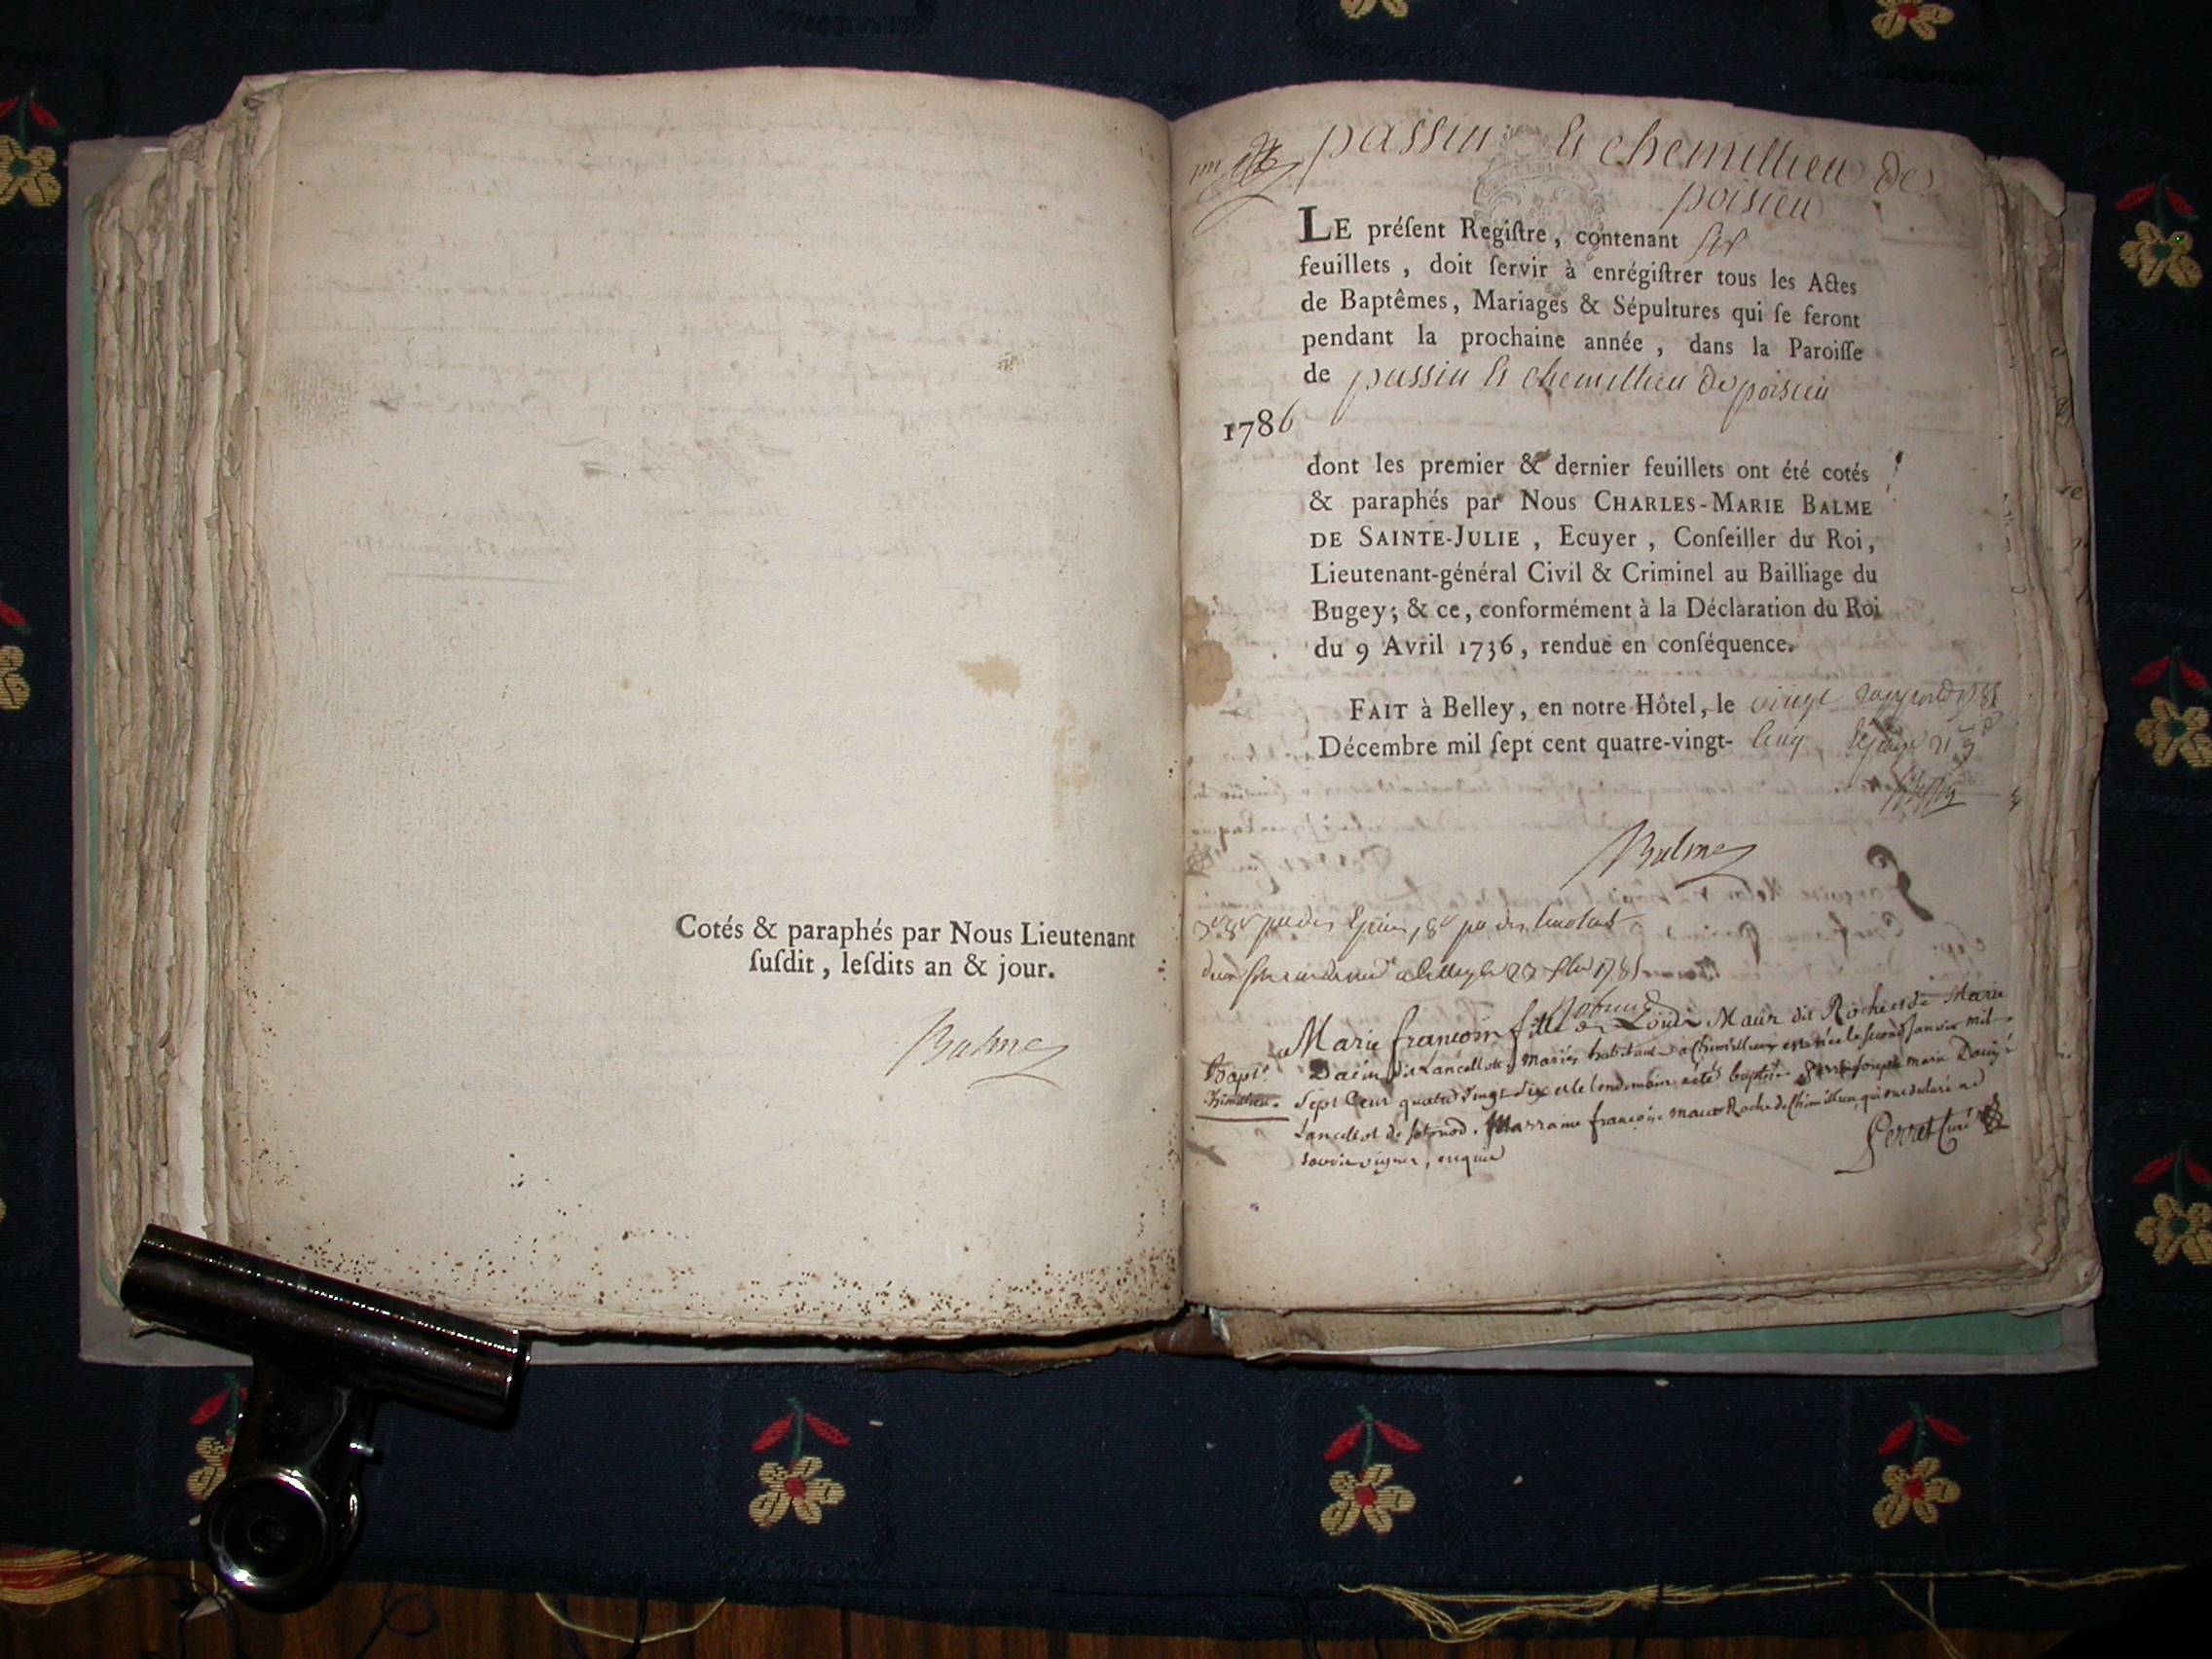 Cotés & paraphés par Nous Lieutenant
ſuſdit, leſdits an & jour.
Balme
passin & chemillieu de
poisieu
LE préſent Regiſtre, contenant six
feuillets, doit ſervir à enrégiſtrer tous les Actes
de Baptêmes, Mariages & Sépultures qui ſe feront
pendant la prochaine année, dans la Paroiſſe
de passin & chemillieu de poisieu
1786
dont les premier & dernier feuillets ont été cotés
& paraphés par Nous CHARLES-MARIE BALME
DE SAINTE-JULIE, Ecuyer, Conſeiller du Roi,
Lieutenant-général Civil & Criminel au Bailliage du
Bugey; & ce, conformément à la Déclaration du Roi
du 9 Avril 1736, rendue en conſéquence.
FAIT à Belley, en notre Hôtel, le vingt
Décembre mil ſept cent quatre-vingt- cinq
Balme
1785
Marie françoise fille de Louis Maur dit Roche et de Marie
dit Lancellot mariés habitants a Chimillieu est née le second Janvier mil
Bapt.
Sept Cent quatre vingt Six et le lendemain a été baptisée Joseph marie
Chimillieu.
Lancellot de . Marraine françoise maur Roche de Chimillieu, qui ont declaré ne
savoir signer, enquis
Perret Curé